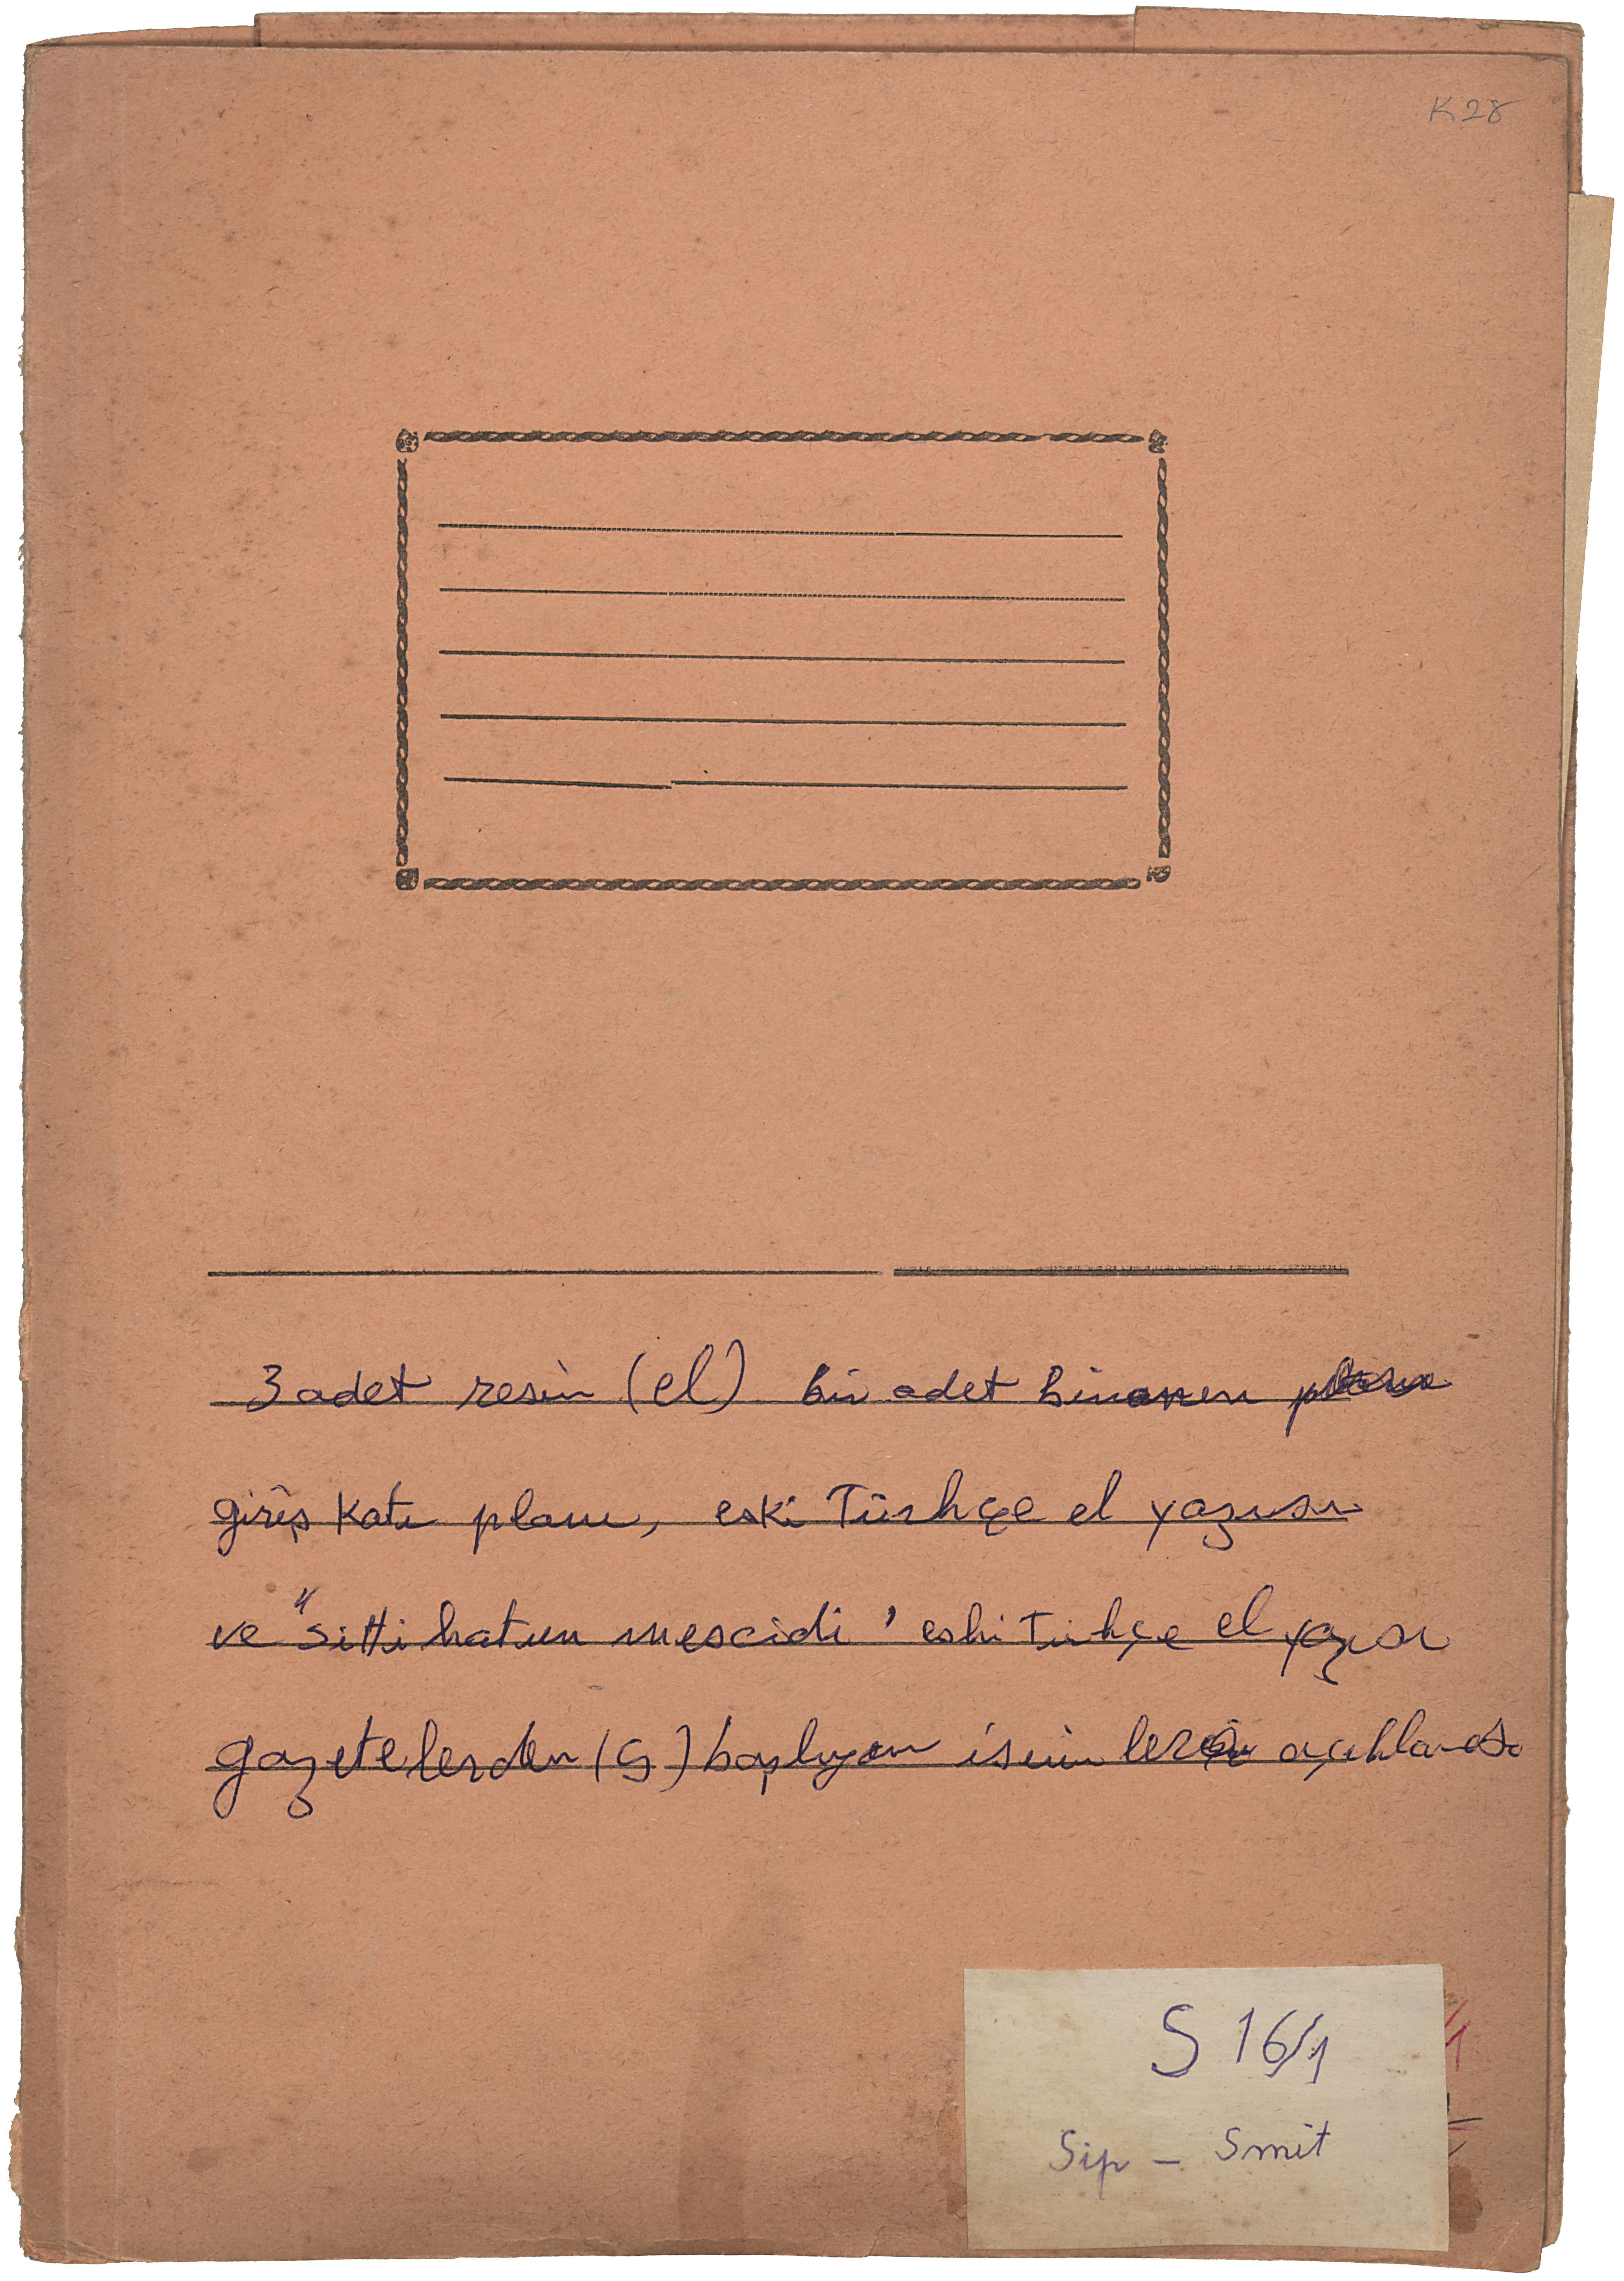 K28
3 adet resim (el) bir adet binanın planı
giriş katı planı, eski Türkçe el yazısı
ve "Sitti hatun mescidi' eski Türkçe el yazısı
gazetelerden (S) başlıyan isimlerin açıklaması
S 16/1
Sip - Smit